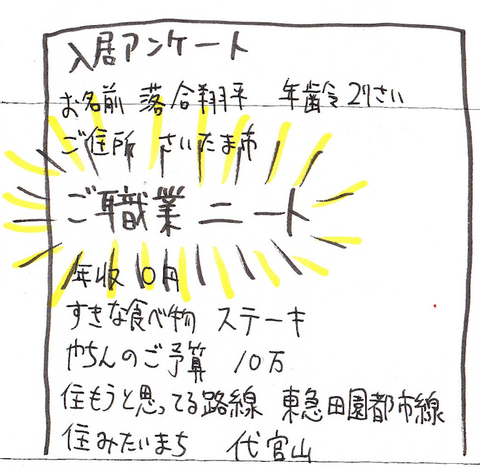 入居アンケート
お名前 落合翔平 年齢 29さい
ご住所 さいたま市
ご職業 ニート
年収 0円
すきな食べ物 ステーキ
やちんのご予算 10万
住もうと思ってる路線 東急田園都市線
住みたいまち 代官山